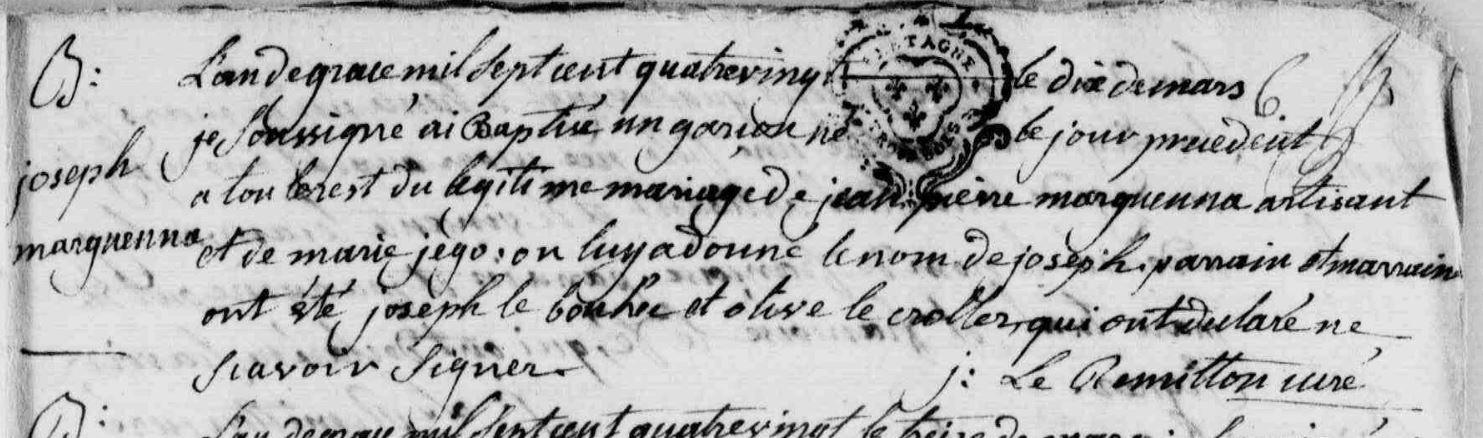 B:
joseph
marquenna
L'an de grace mil sept cent quatre vingt le dix de mars
je soussigné ai Baptisé un garçon né le jour precedent
du legitime mariage de jean pierre marquenna artisant
et de marie jego, on luy a donné le nom de joseph. parrain et marraine
ont été joseph le bouhéc et olive le croller, qui ont declaré ne
scavoir signer.
j: Le Remitton curé
B:
L'an de grace mil sept cent quatre vingt le treize de mars